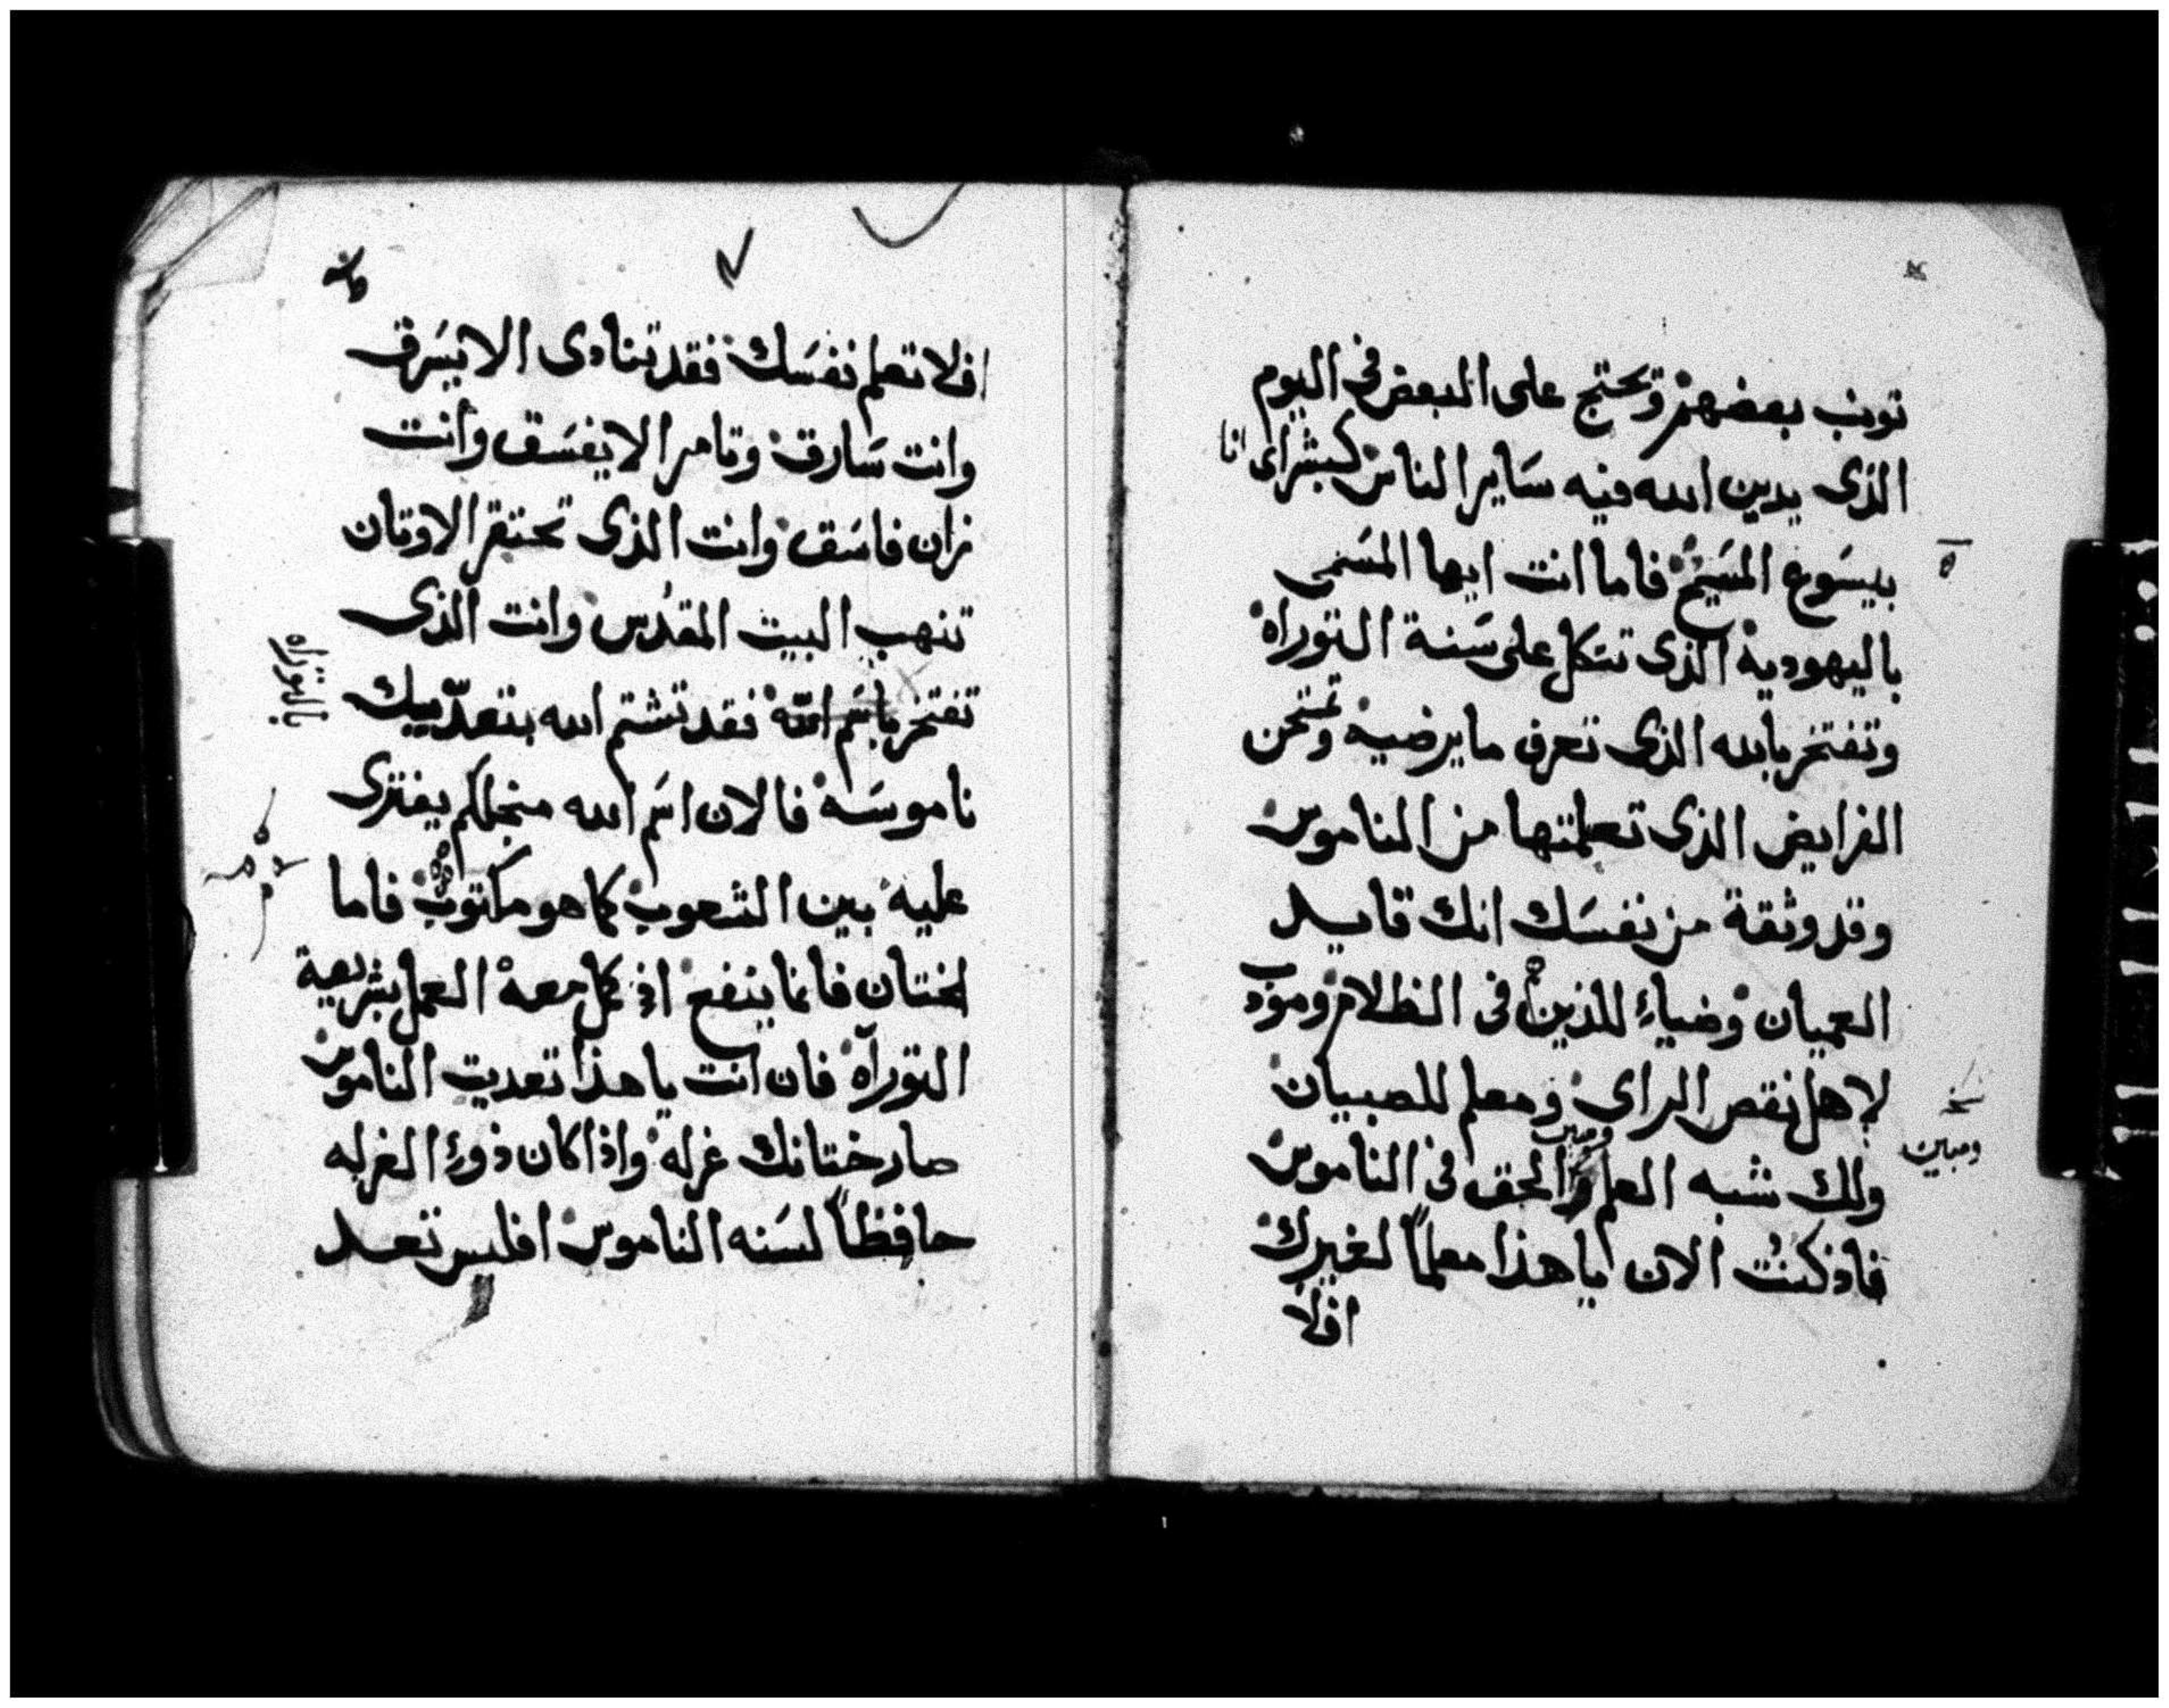 توبخ بعضهم وتحتج على البعض فى اليوم
الذى يدين الله فيه ساير الناس كبشراى انا
بيسوع المسيح فاما انت ايها المسمى
باليهودية الذى تتكل على سنة التوراة
وتفتخر بالله الذى تعرف ما يرضيه وتمتحن
الفرايض الذى تعلمتها من الناموس
وقد وثقة من نفسك انك قايد
العميان وضياء للذين فى الظلام ومودب
لاهل نقص الراى ومعلم للصبيان
ولك شبه العلم والحق فى الناموس
ومبين
فاذ كنت الان يا هذا معلماً لغيرك
افلا
افلا تعلم نفسك فقد تنادى الا يسرق
وانت سارق وتامر الا يفسق وانت
زان فاسق وانت الذى تحتقر الاوتان
تنهب البيت المقدس وانت الذى
تفتخر باسم الله فقد تشتم الله بتعدّييك
بالتوراه
ناموسه فالان اسم الله منجلكم يفترى
عليه بين الشعوب كما هو مكتوب فاما
لختان فانما ينفع اذ كمل معه العمل بشريعة
التوراة فان انت يا هذا تعديت الناموس
صار ختانك غرله واذا كان ذوء الغرله
حافظاً لسنه الناموس افليس تعد